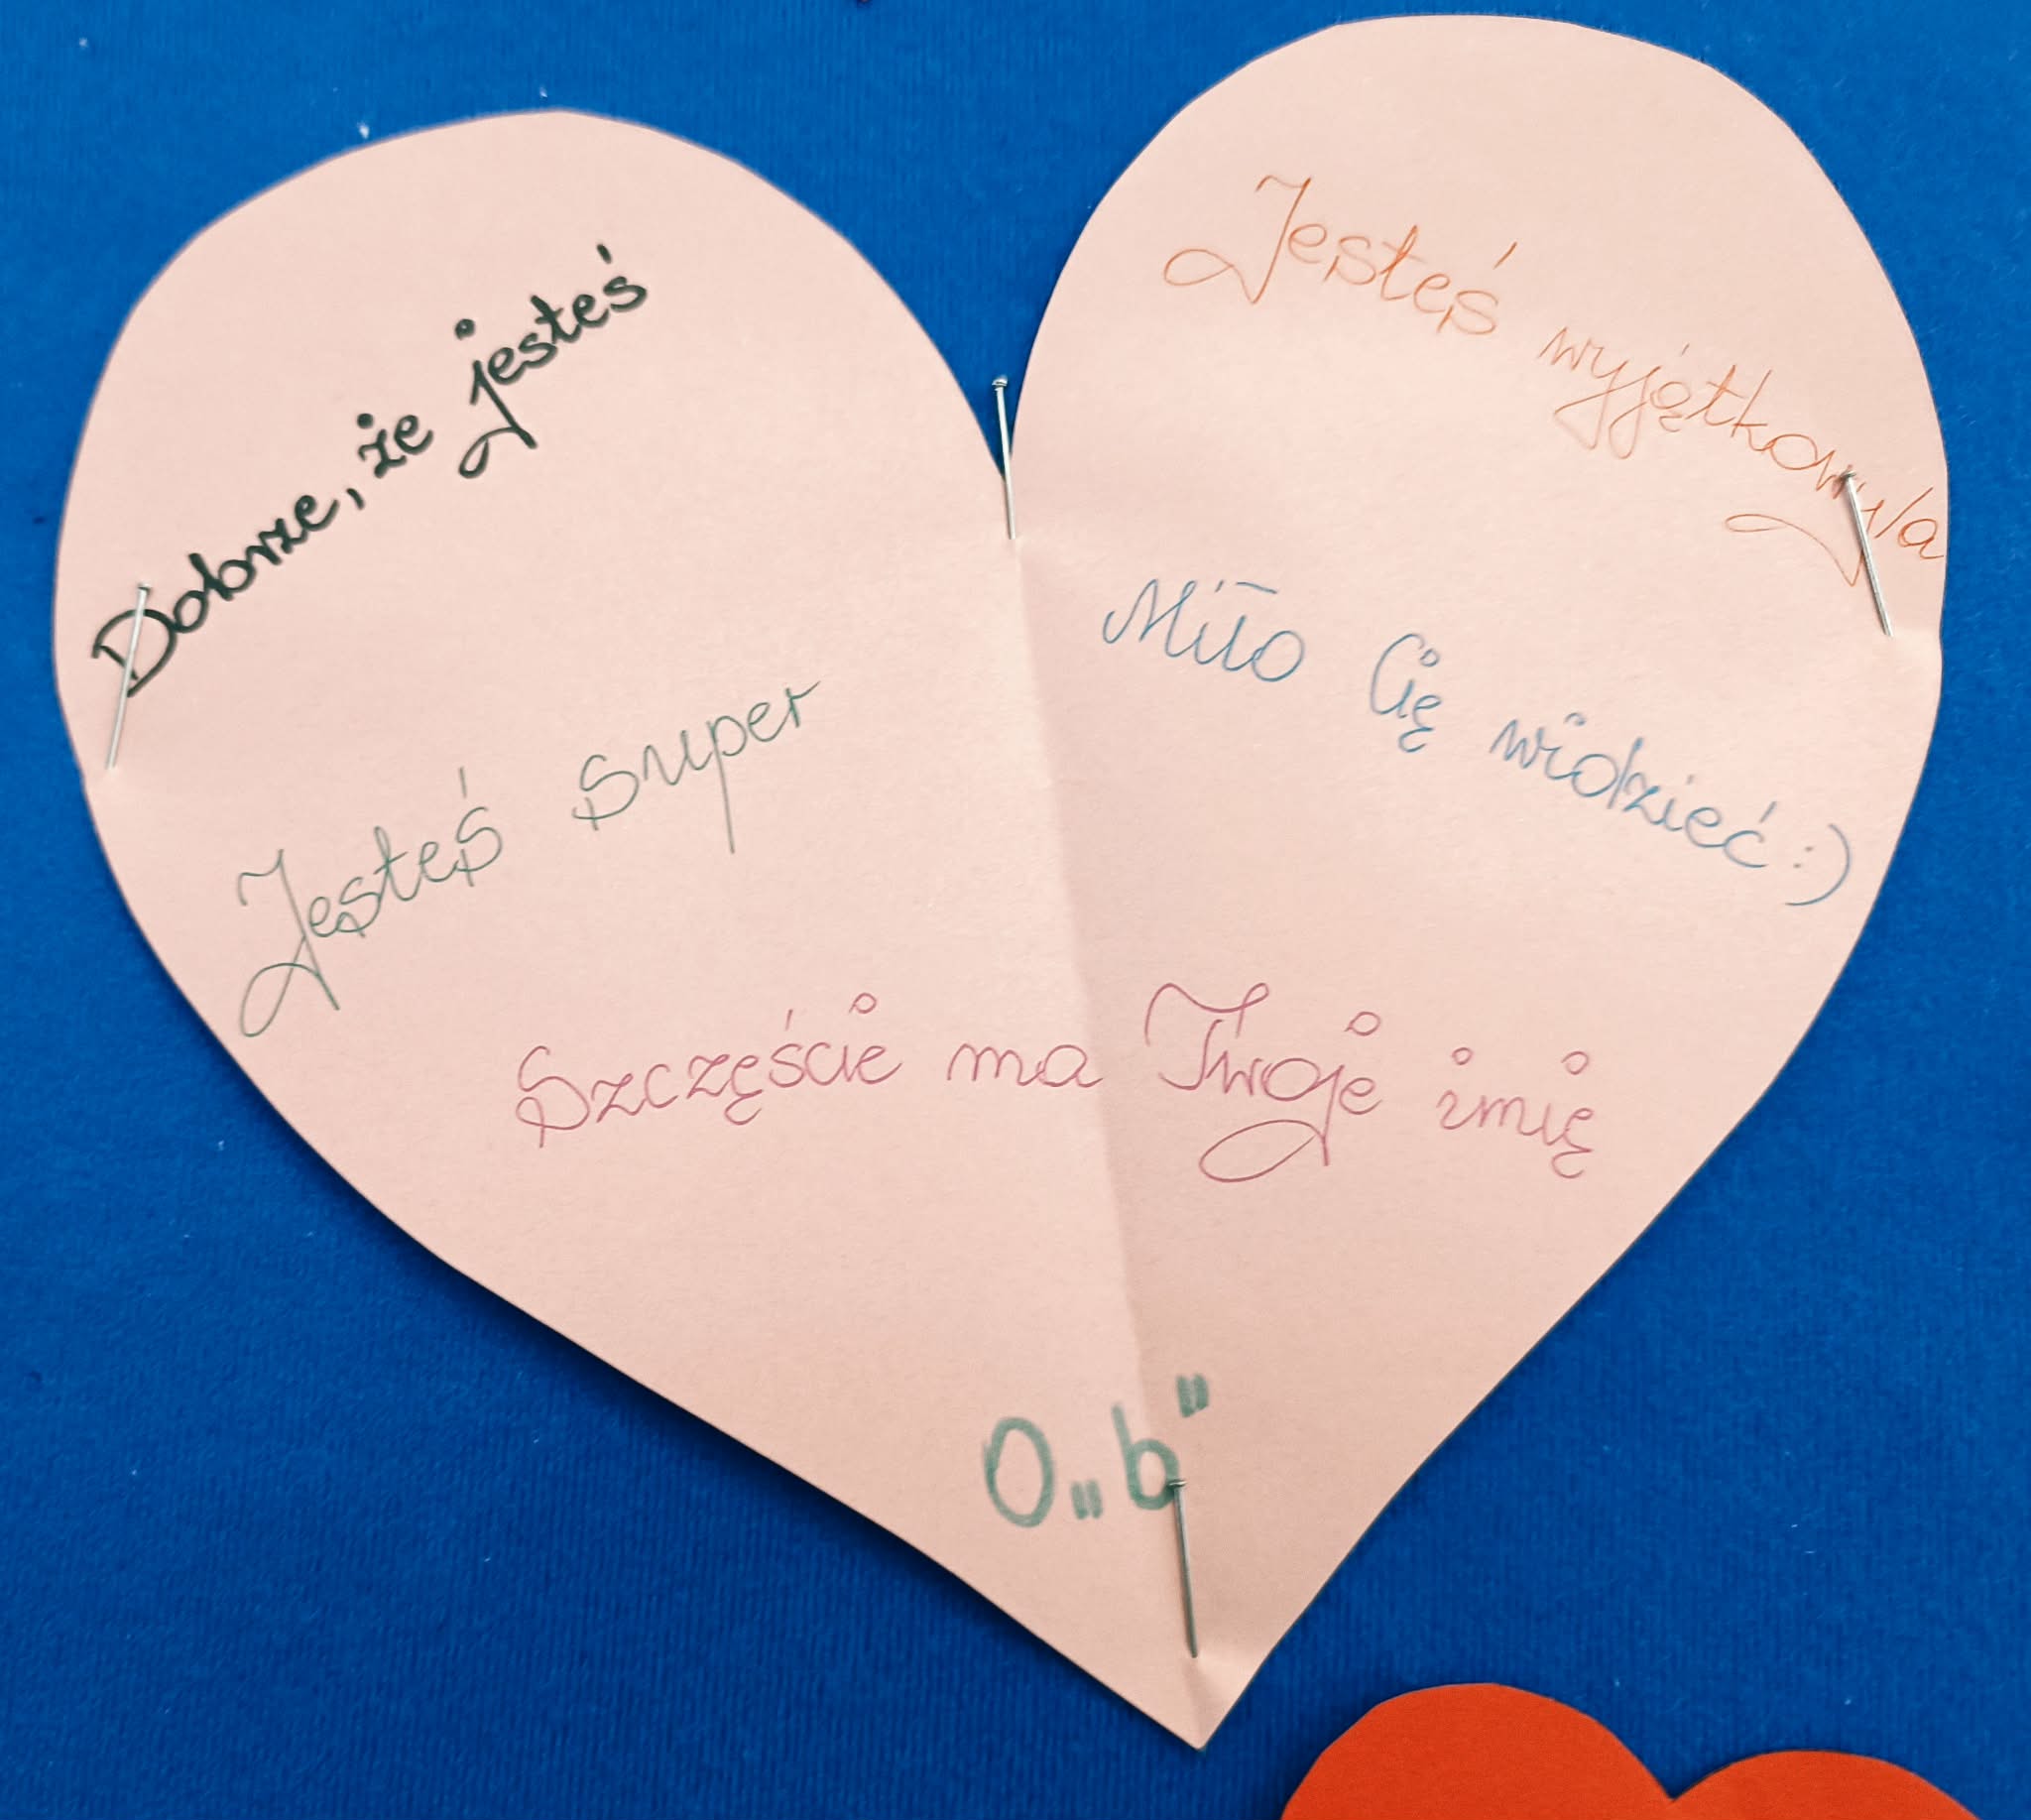 Dobrze, że jesteś
Jesteś wyjątkowy/a
Miło Cię widzieć :)
Jesteś super
Szczęście ma Twoje imię
0„b"